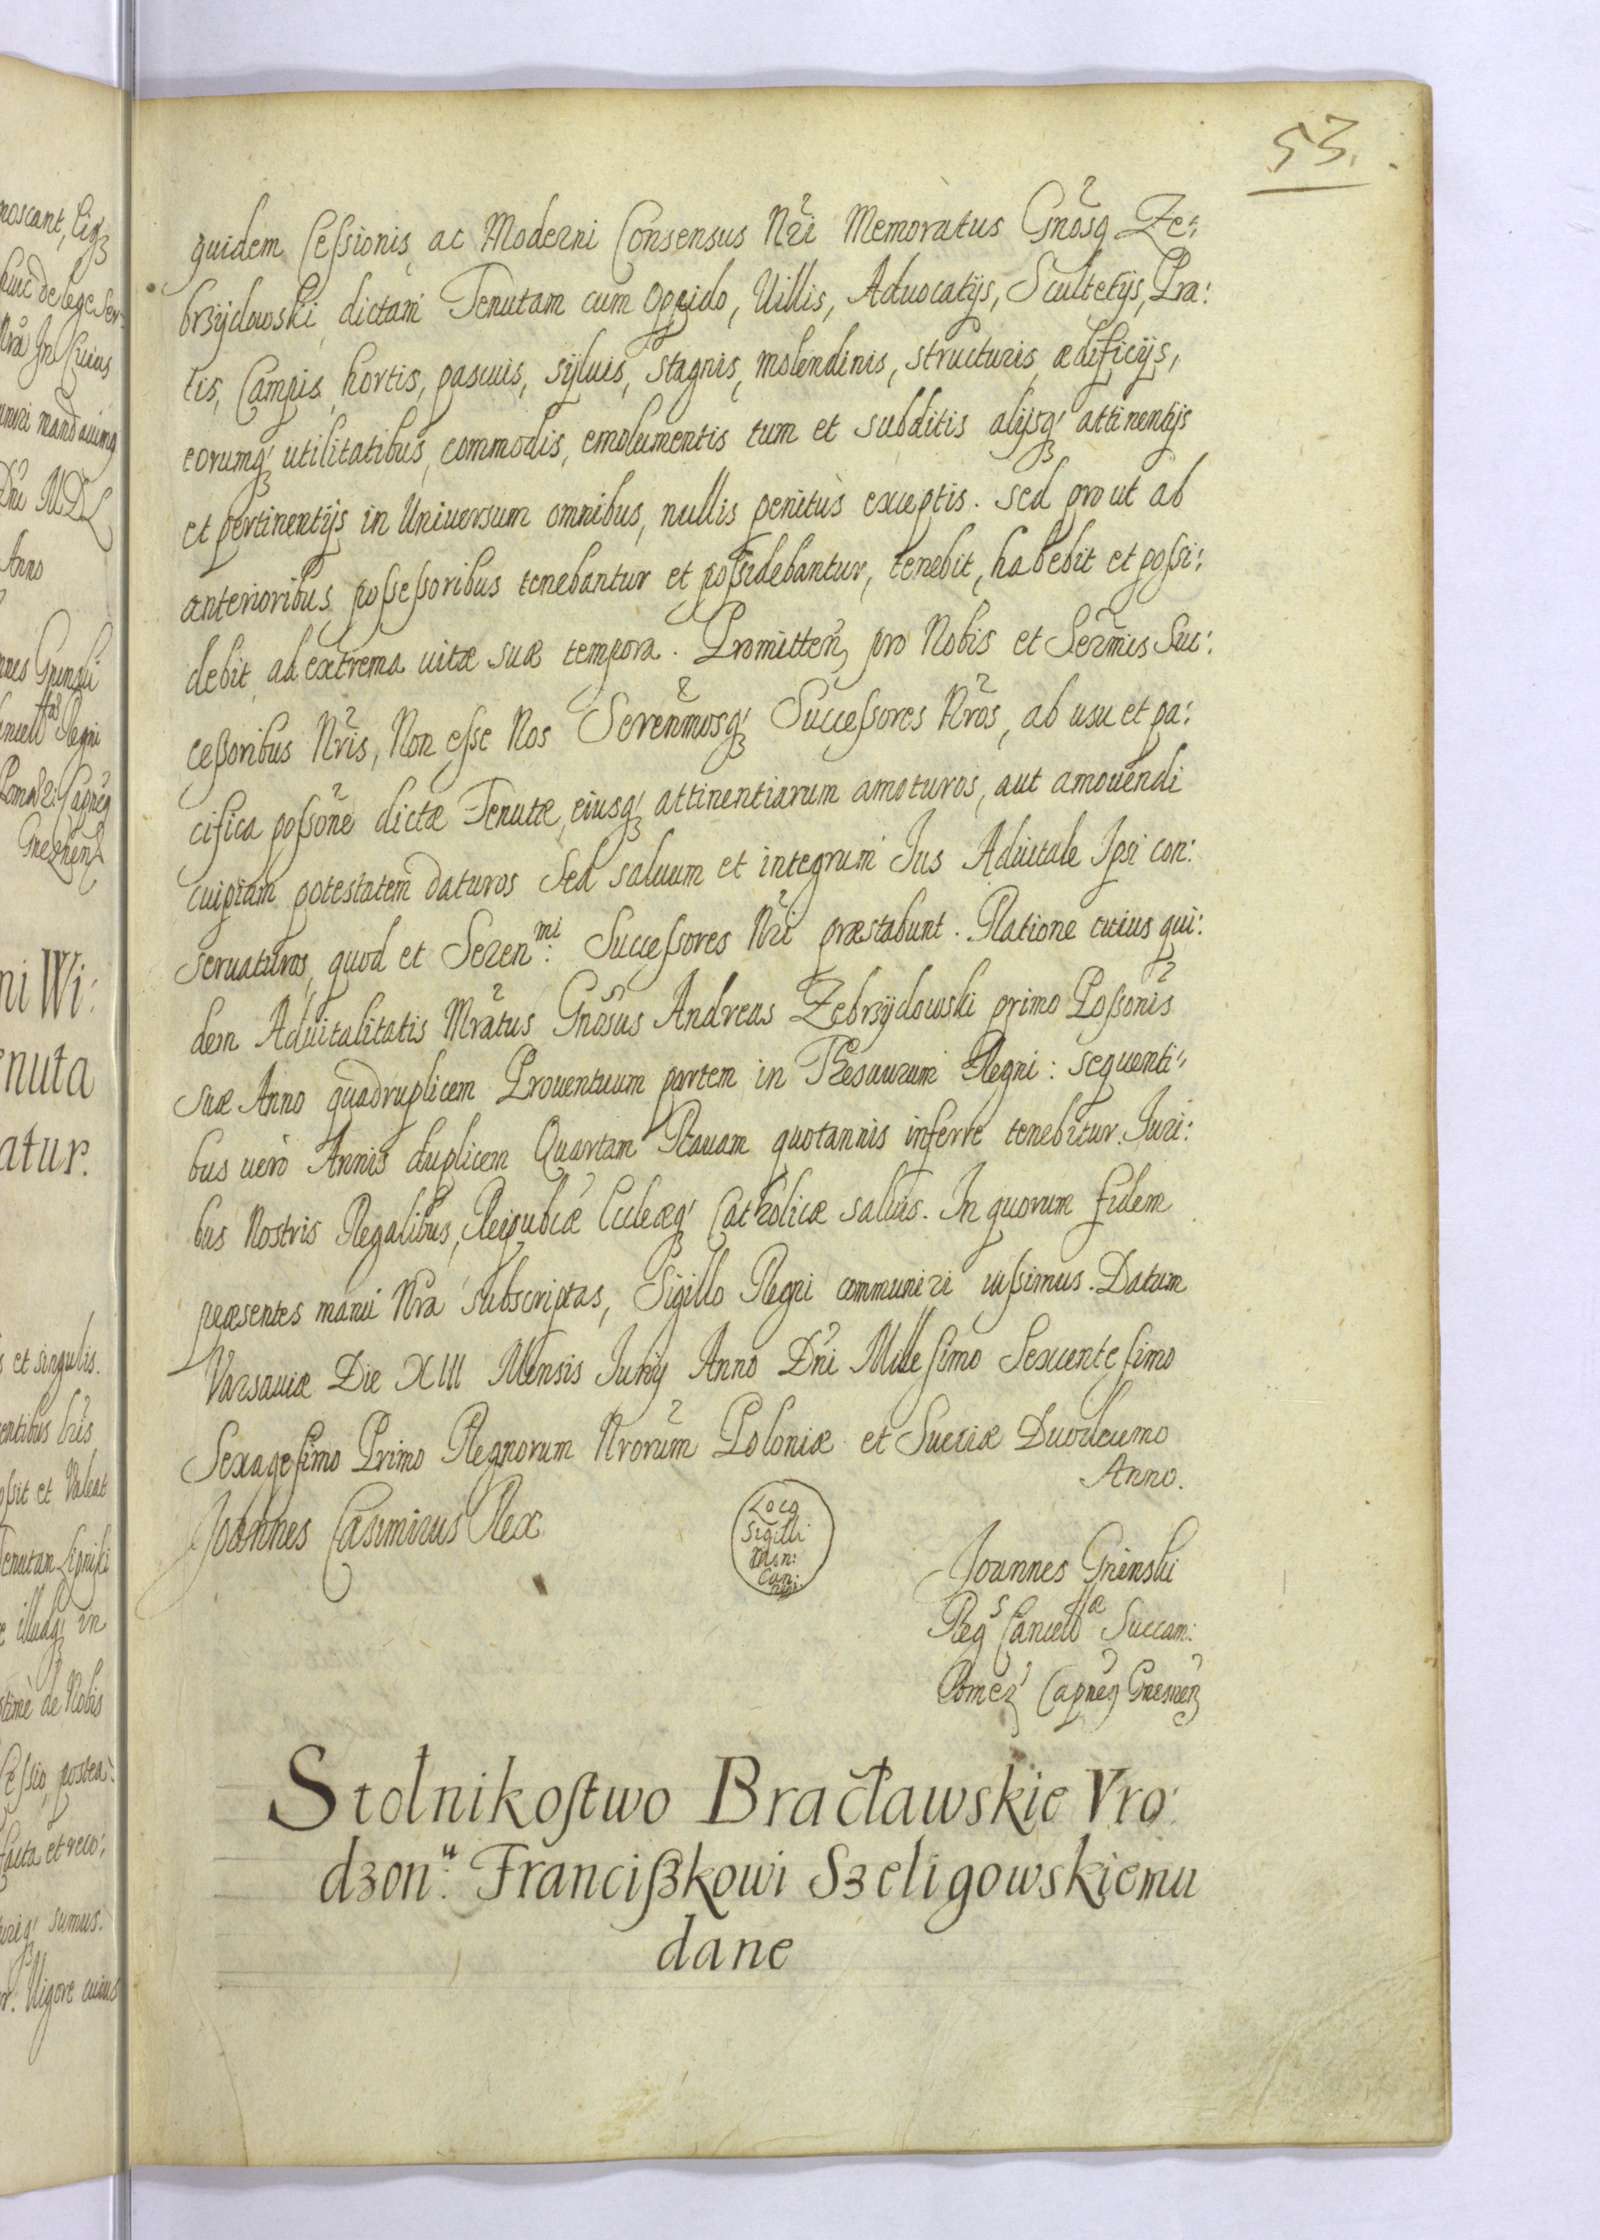 53.
quidem Cessionis, ac Moderni Consensus Nri Memoratus Gnosq Ze:
brzydowski, dictam Tenutam cum Oppido, Villis, Aduocatijs, Scultetijs, Pra:
tis, Campis, hortis, pascuis, syluis, stagnis, molendinis, structuris, ædificijs,
eorumq utilitatibus, commodis, emolumentis tum et subditis alijsq attinentijs
et pertinentijs in Uniuersum omnibus, nullis penitùs exceptis. sed prout ab
anterioribus possessoribus tenebantur et possidebantur, tenebit, habebit et possi:
debit, ad extrema uitæ suæ tempora. Promitten, pro Nobis et Sermis Suc:
cessoribus Nris, Non esse Nos Serenmosq Successores Nros, ab usu et pa:
cifica possone dictæ Tenutæ, eiusq attinentiarum amoturos, aut amouendi
cuipiam potestatem daturos Sed saluum et integrum Ius Aduitale Ipsi con:
seruaturos, quod et Seren mi: Successores Nri præstabunt. Ratione cuius qui:
dem Aduitalitatis Mratus Gnosus Andreas Zebrzydowski primo Possonis
suæ Anno quadruplicem Prouentuum partem in Thesaurum Regni: sequenti:
bus uerò Annis duplicem Quartam Rauam quotannis inferre tenebitur. Iuri:
bus Nostris Regalibus, Reipublæ Eccleæq Catholicæ saluis. In quorum fidem
præsentes manu Nra subscriptas, Sigillo Regni communiri iussimus. Datum
Varsauiæ Die XIII Mensis Iunij Anno Dni Millesimo Sexcentesimo
Sexagesimo Primo Regnorum Nrorum Poloniæ et Sueciæ Duodecimo
Anno.
Joannes Casimirus Rex
Loco
Sigilli
Min:
Can:
Regni
Joannes Gninski
Reg s Cancell æ Succam:
Pomer Capneq Gnesnen
Stolnikostwo Bracławskie Vro:
dzon u: Franciszkowi Szeligowskiemu
dane